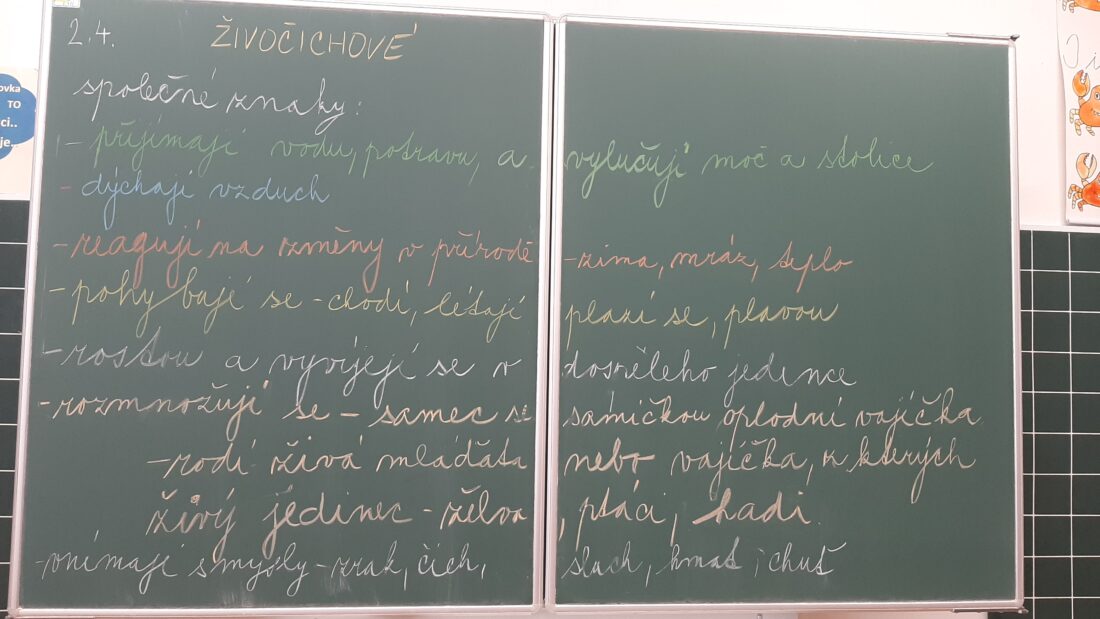 2.4. ŽIVOČICHOVÉ
společné znaky:
- přijímají vodu, potravu, a vylučují moč a stolice
- dýchají vzduch
- reagují na změny v přírodě - zima, mráz, teplo
- pohybují se - chodí, létají plazí se, plavou
- rostou a vyvíjejí se v dospělého jedince
- rozmnožují se - samec se samičkou oplodní vajíčka
- rodí živá mláďata nebo vajíčka, z kterých
živý jedinec - želva, ptáci, hadi.
- vnímají smysly - zrak, čich, sluch, hmat, chuť
ovka
TO
ci..
je..